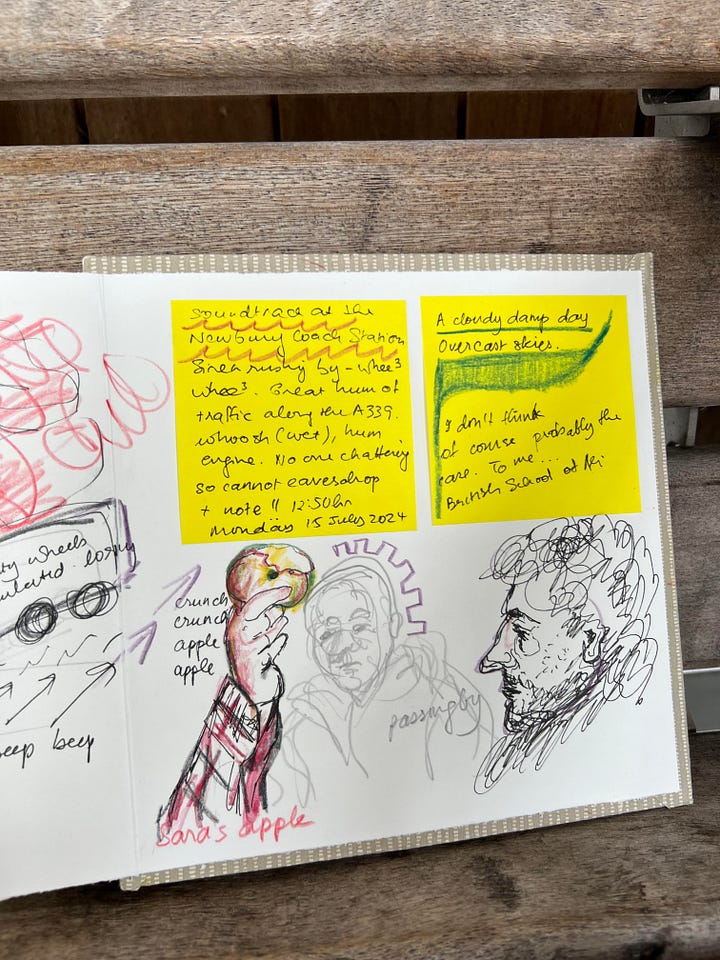 soundtrack at the
Newbury Coach Station
Siren rushing by - whee³
whee³. Great hum of
traffic along the A339.
whoosh (wet), hum
engine. No one chattering
so cannot eavesdrop
+ note !! 12:50hr
Monday 15 July 2024
A cloudy damp day
Overcast skies.
I don't think
of course probably the
care. To me...
British School at
ty wheels
beep
crunch
crunch
apple
apple
passing by
Sara's apple